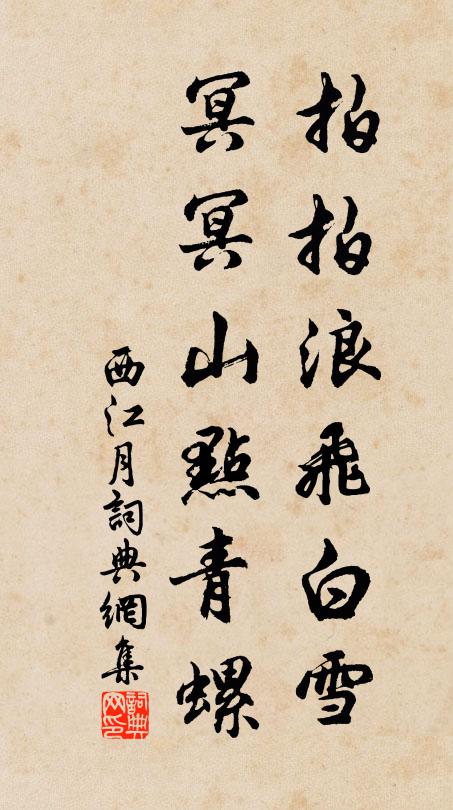 拍拍浪飛白雪
冥冥山點青螺
西江月詞典網集
詞典網印